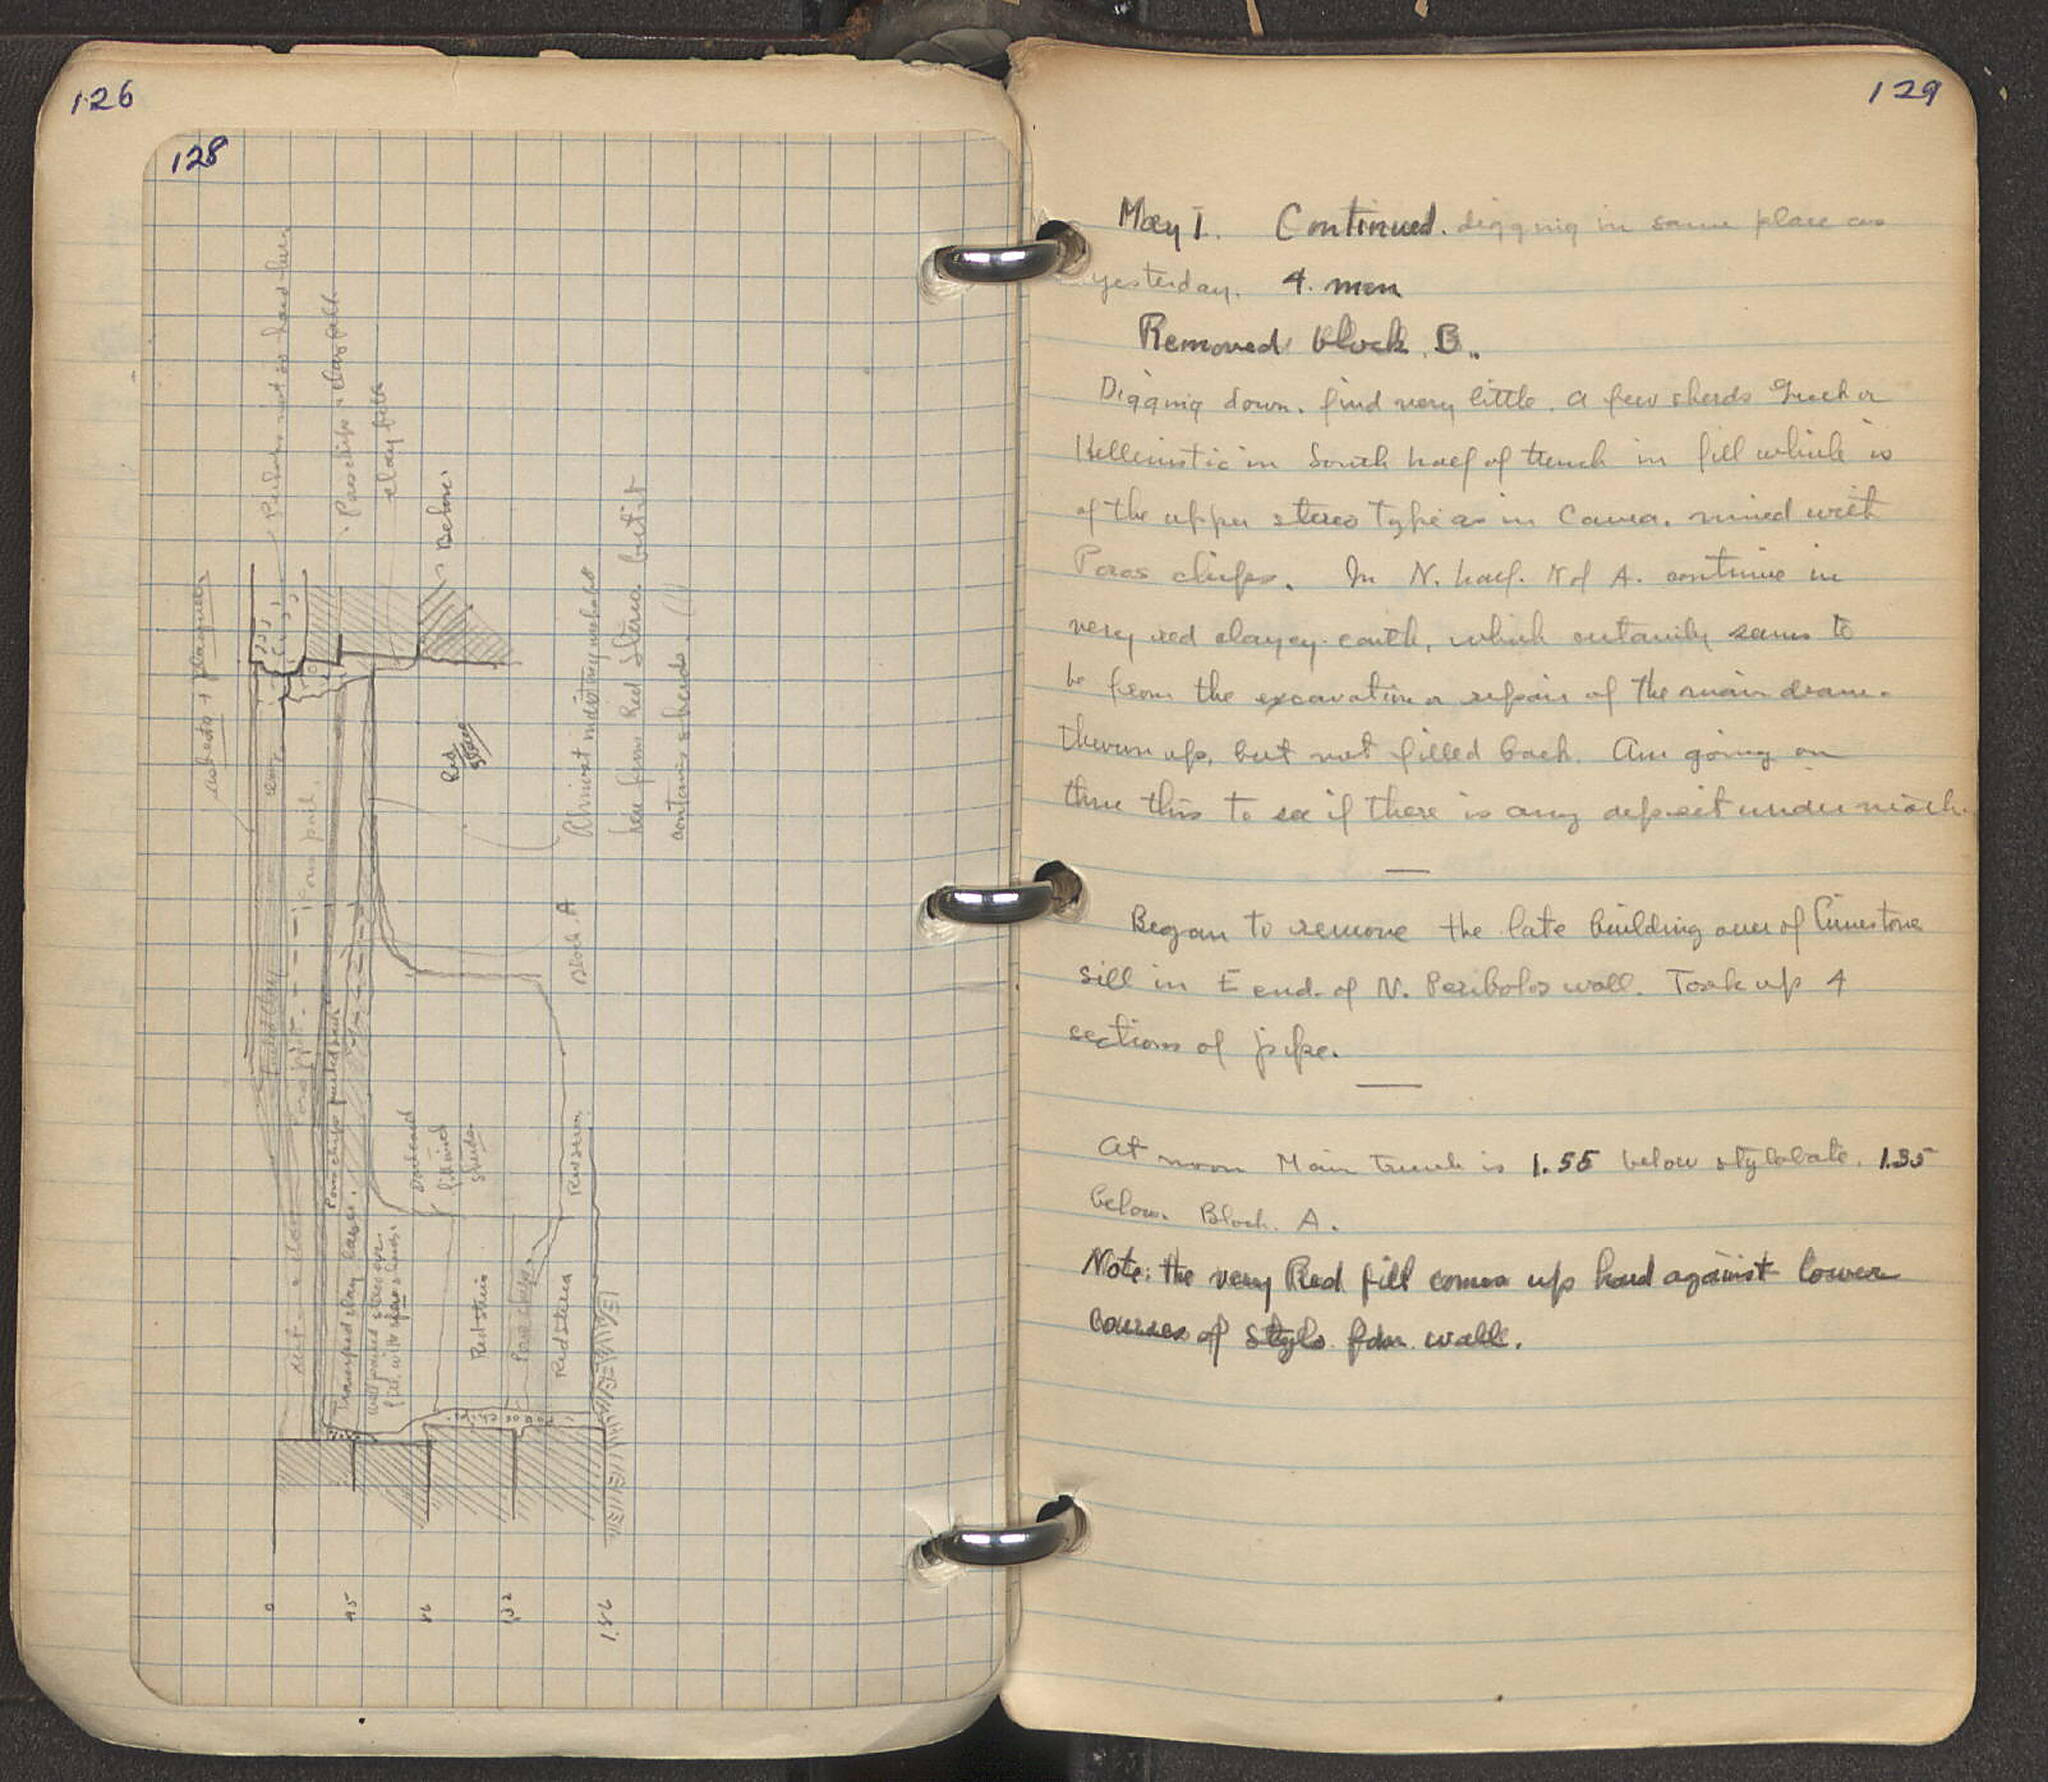 126
128
subsedo + plaquer
Poros chips + clay fill
clay fill
Behnc.
Red
Stereo
Almost indistinguishable
from Red Sterea but it
contains sherds.
Block A
Poros chips packed hard
Transported clay layer.
fill with sherds.
sherds
Red stereo
Poros chips
Red sterea
0
45
86
132
1.86
129
May 1. Continued. digging in same place as
yesterday. 4. men
Removed block. B.
Digging down. find very little. A few sherds Greek or
Hellenistic in South half of trench in fill which is
of the upper stereo type as in Cavea. mixed with
Poros chips. In N. half. N of A. continue in
very red clayey earth, which certainly seems to
be from the excavation or repair of the main drain.
thrown up, but not filled back. Am going on
thru this to see if there is any deposit underneath.
Began to remove the late building over of limestone
sill in E end of N. Peribolos wall. Took up 4
sections of pipe.
At noon Main trench is 1.55 below stylobate. 1.35
below. Block. A.
Note: the very Red fill comes up hard against lower
courses of stylo. fdn. wall.